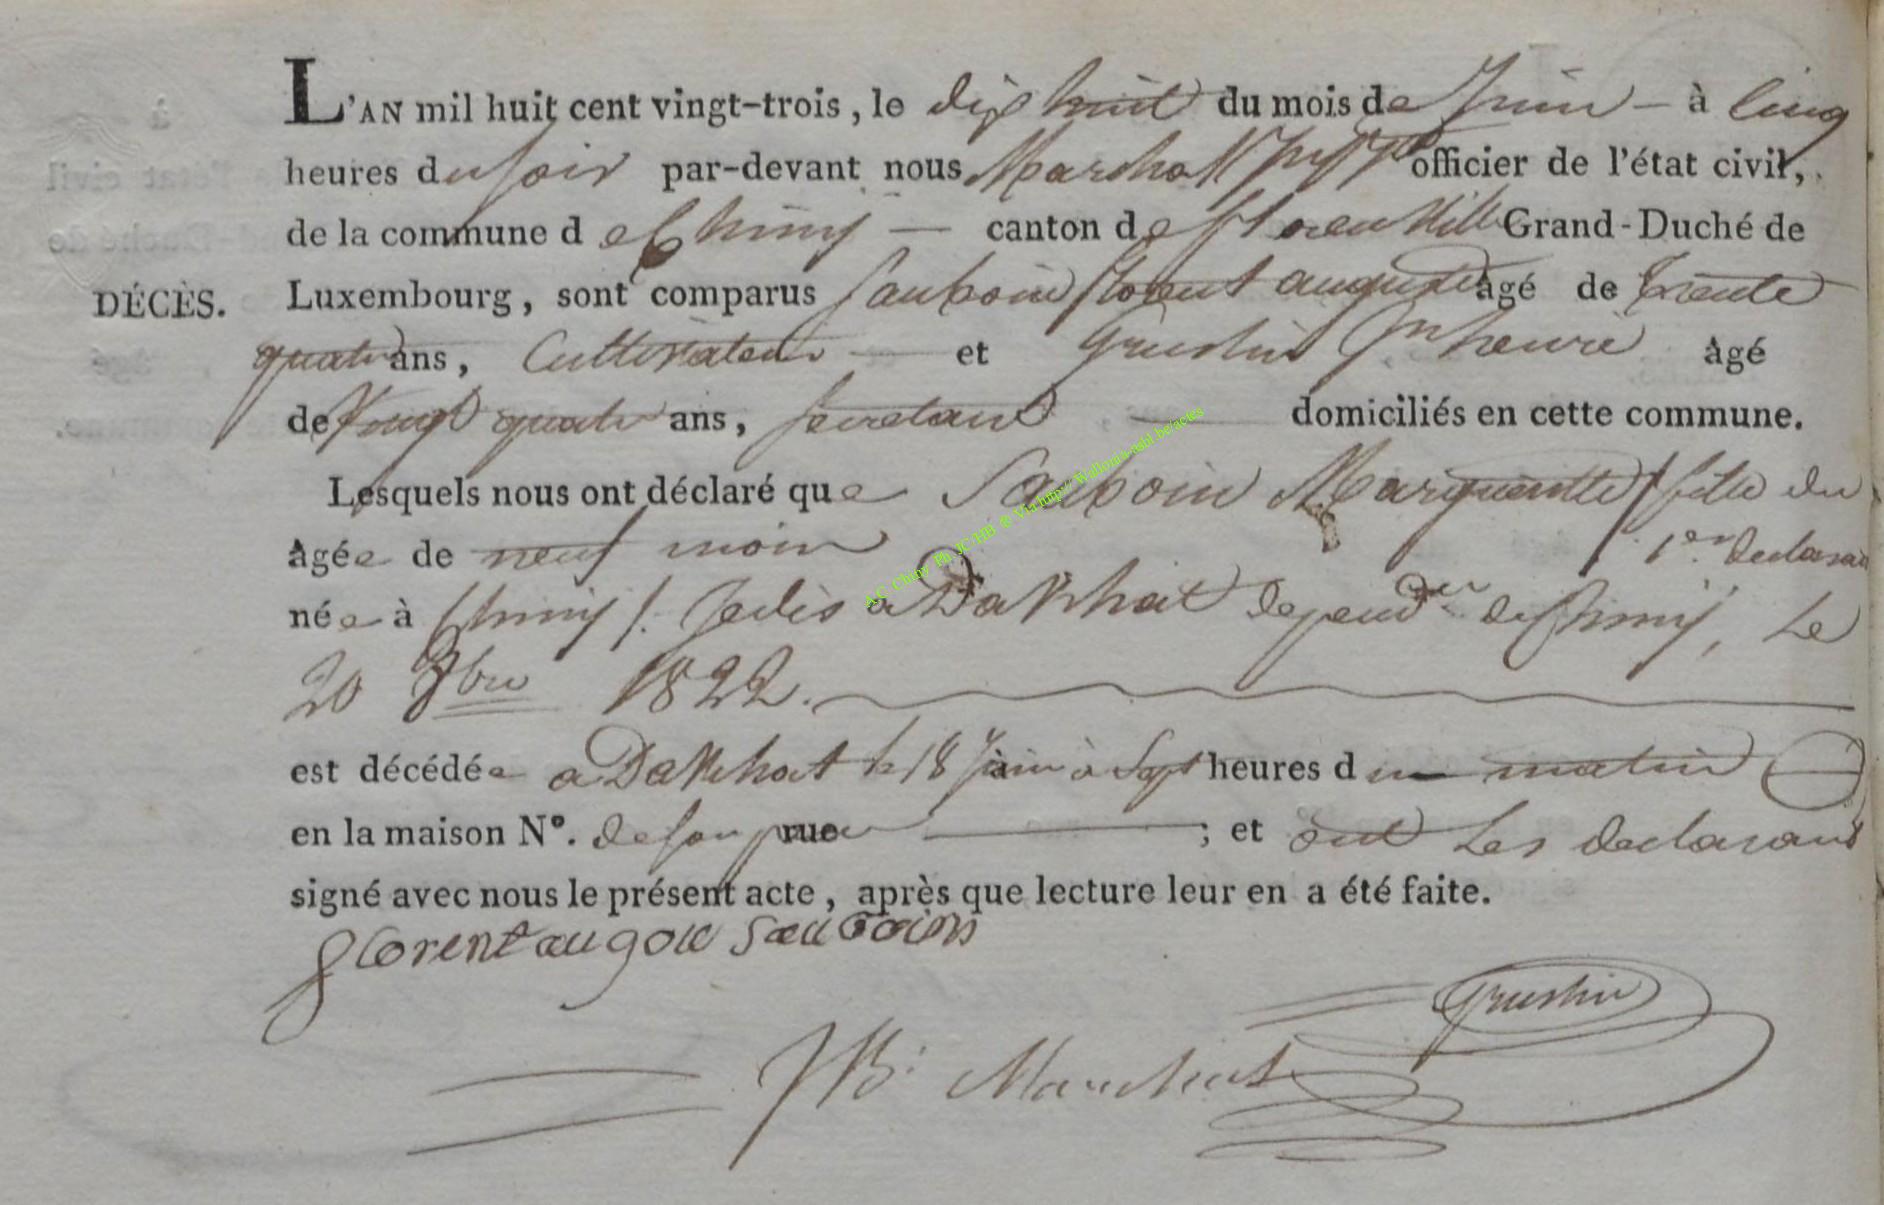 L'AN mil huit cent vingt-trois, le dix huit du mois de Juin - à cinq
heures du soir par-devant nous officier de l'état civil,
de la commune de Chiny — canton de florenville Grand-Duché de
DÉCÈS. Luxembourg, sont comparus Sauboin florent auguste âgé de trente
quatre ans, Cultivateur — et Grustin Jn henri âgé
de Vingt quatre ans, secretaire — domiciliés en cette commune.
Lesquels nous ont déclaré que Sauboin Margueritte / fille du
âgée de neuf mois 1er. declarant
née à Chiny /. à Dakhot de Chiny, Le
20 7bre 1822.
est décédée a Dakhot le 18 juin à Sept heures du matin
en la maison N°. de son pere rue — ; et ont Les declarans
signé avec nous le présent acte, après que lecture leur en a été faite.
florent augou sauboin
Grustin
JB: Marchot
A.C. Chiny Ph. JC/HB @ Via http://Wallonia-asbl.be/actes